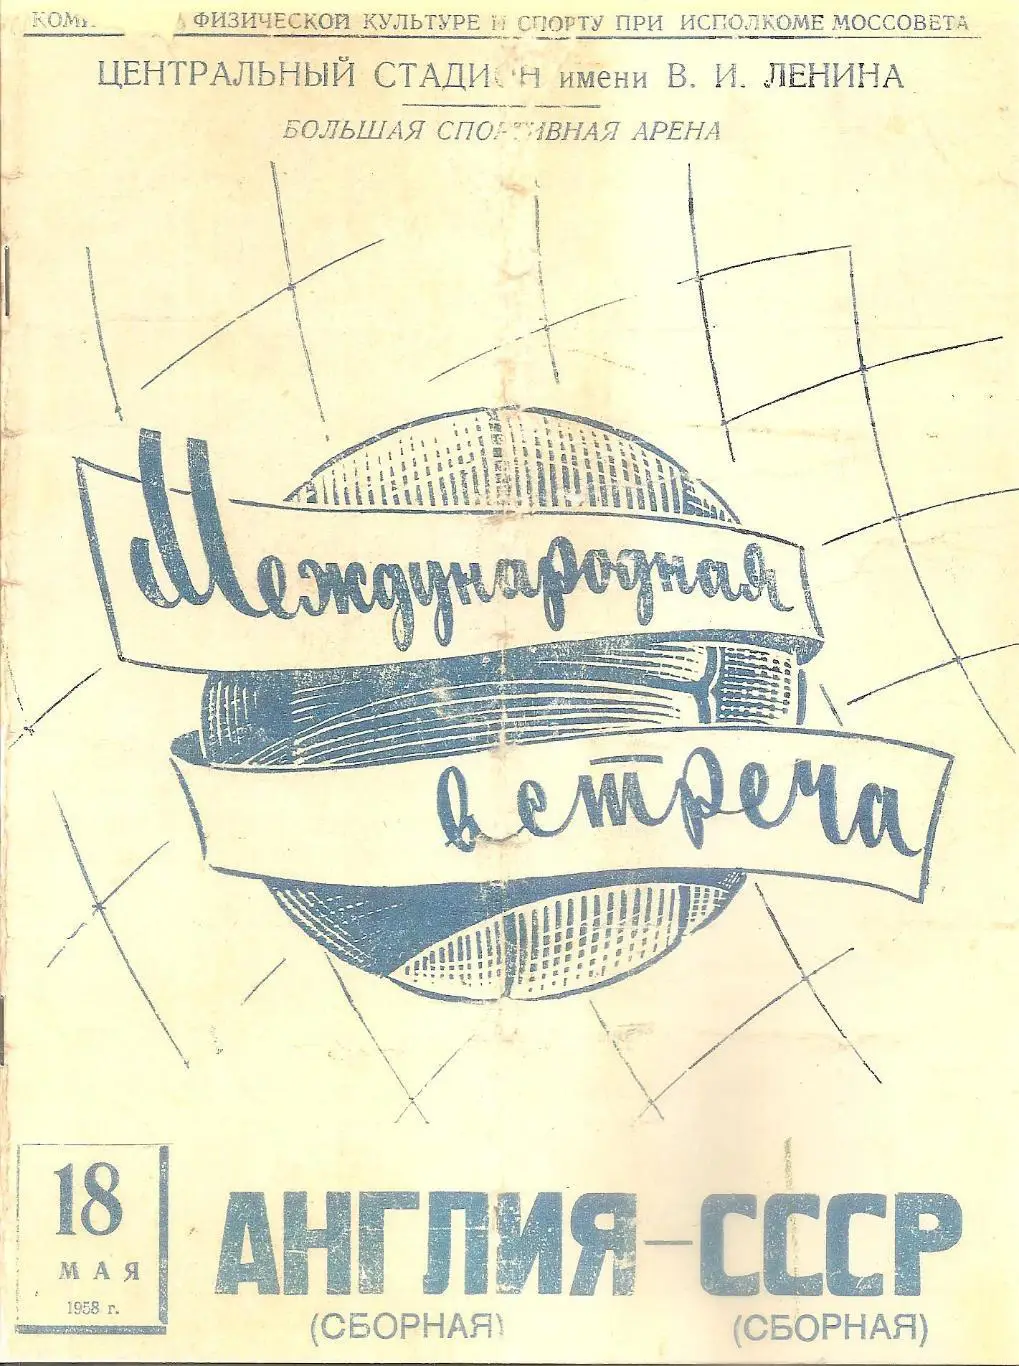 ФИЗИЧЕСКОЙ КУЛЬТУРЕ И СПОРТУ ПРИ ИСПОЛКОМЕ МОССОВЕТА
ЦЕНТРАЛЬНЫЙ СТАДИОН имени В. И. ЛЕНИНА
БОЛЬШАЯ СПОРТИВНАЯ АРЕНА
Международная
встреча
18
МАЯ
1958 г.
АНГЛИЯ—СССР
(СБОРНАЯ) (СБОРНАЯ)